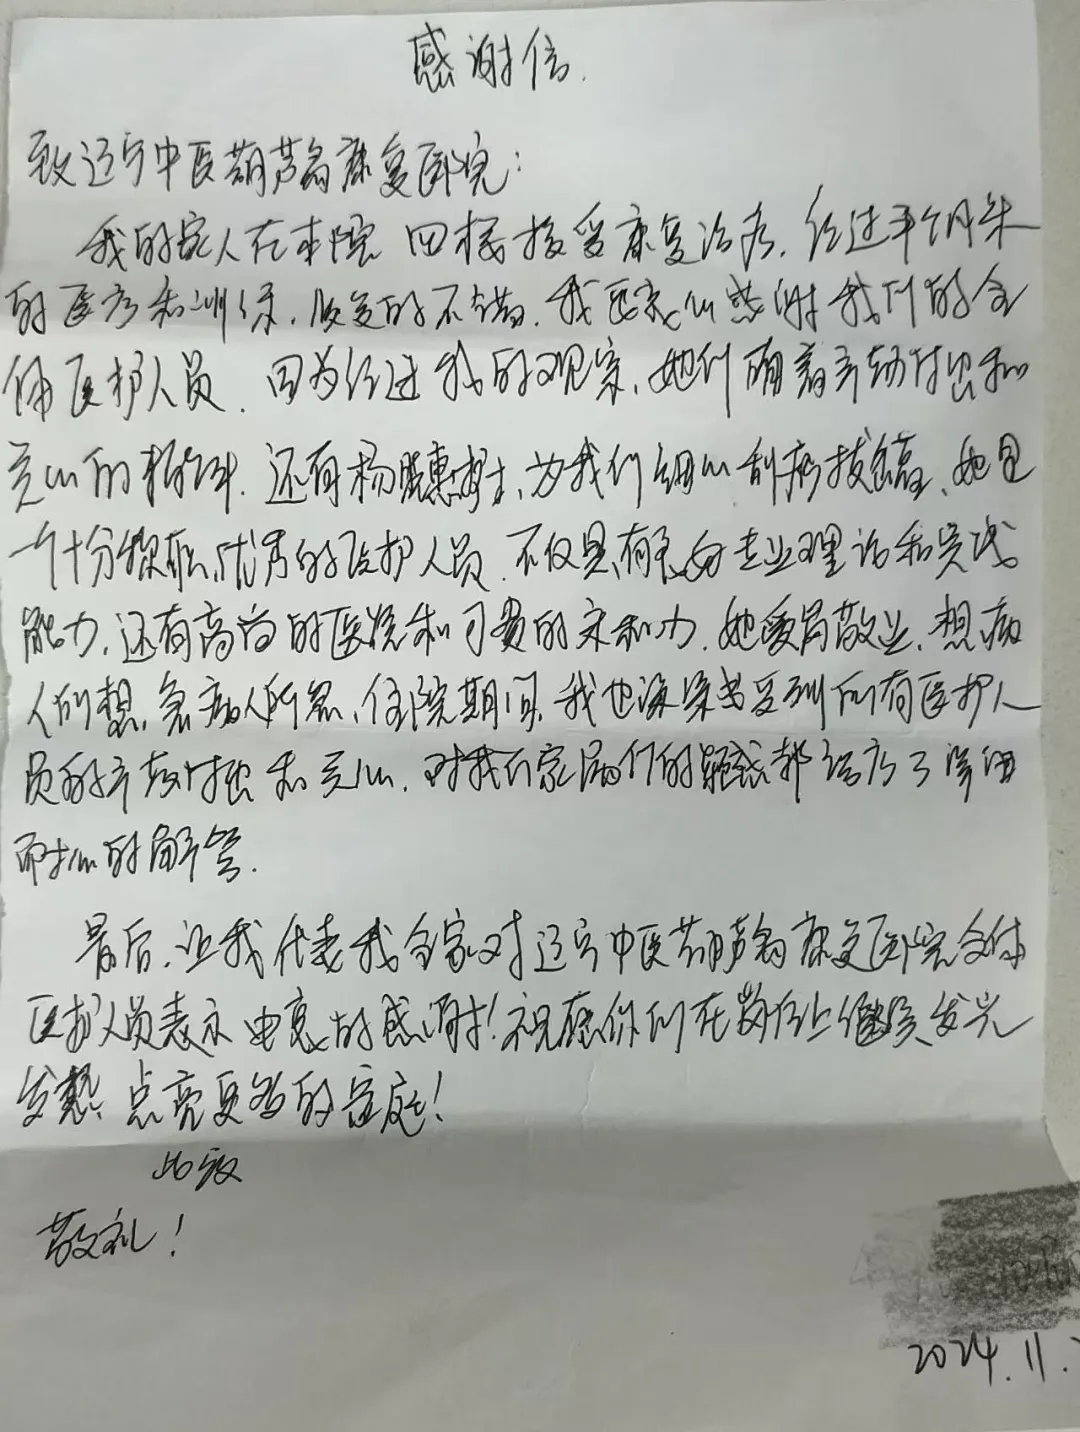 感谢信.
致辽宁中医葫芦岛康复医院:
我的家人在本院 四楼接受康复治疗. 经过半个月来
的医疗和训练, 恢复的不错. 我 感谢我们的全
体医护人员. 因为经过我的观察, 她们 辛劳付出和
关心的 . 还有杨 惠护士, 为我们细心刮痧拔罐, 她是
一个十分 优秀的医护人员. 不仅具有良好专业理论和实践
能力, 还有高尚的医德和可贵的亲和力. 她爱岗敬业. 想病
人所想, 急病人所急, 住院期间, 我也深深感受到所有医护人
员的辛劳付出和关心. 对我们家属们的疑惑都给予了详细
耐心的解答.
最后, 让我代表我全家对辽宁中医葫芦岛康复医院全体
医护人员表示由衷的感谢! 祝愿你们在岗位上继续发光
发热, 点亮更多的家庭!
此致
敬礼!
2024.11.